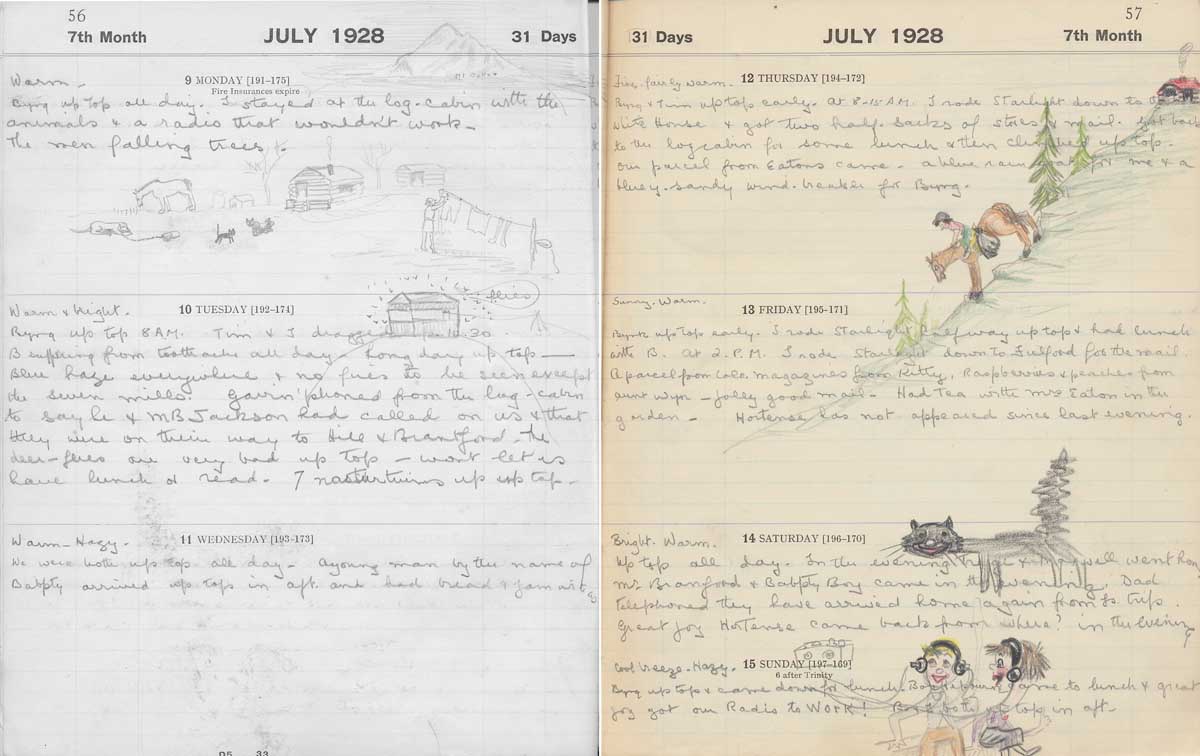 56
7th Month JULY 1928 31 Days
9 MONDAY [191–175]
Fire Insurances expire
Mt Baker
Warm –
Byng up top all day. I stayed at the log-cabin with the
animals & a radio that wouldn't work –
The men falling trees.
10 TUESDAY [192–174]
flies
Warm & bright.
Byng up top 8 AM. Tim & I 10.30
B suffering from toothache all day – Long day up top –
Blue haze everywhere & no fires to be seen except
the seven mills. Gavin 'phoned from the log-cabin
to say he & MB Jackson had called on us & that
they were on their way to Hill & Brantford – The
deer-flies are very bad up top – won't let us
have lunch or read. 7 nasturtiums up top –
11 WEDNESDAY [193–173]
Warm – Hazy.
We were both up top all day – A young man by the name of
Babpty arrived up top in aft. and had bread & jam with
57
31 Days JULY 1928 7th Month
12 THURSDAY [194–172]
Fine, fairly warm.
Byng & Tim up top early. At 8-15 AM. I rode Starlight down to
White House & got two half sacks of & mail. Got back
to the log cabin for some lunch & then climbed up top.
Our parcel from Eatons came – a blue rain coat for me & a
bluey-sandy wind-breaker for Byng.
13 FRIDAY [195–171]
Sunny. Warm.
up top early. I rode Starlight half way up top & had lunch
with B. At 2. P.M. I rode Starlight down to Fulford for the mail.
A parcel from magazines from Kitty, Raspberries & peaches from
aunt – jolly good mail – Had Tea with Mrs Eaton in the
garden – Hortense has not appeared since last evening.
14 SATURDAY [196–170]
Bright. Warm.
Up top all day. In the evening & Maxwell went home
Mr Branford & Babpty Boy came in the evening, Dad
telephoned they have arrived home again from trip.
Great Joy Hortense came back from where? in the evening
15 SUNDAY [197–169]
6 after Trinity
Cool breeze. Hazy.
Byng up top & came down for lunch. came to lunch & great
joy got our Radio to WORK! both up top in aft –